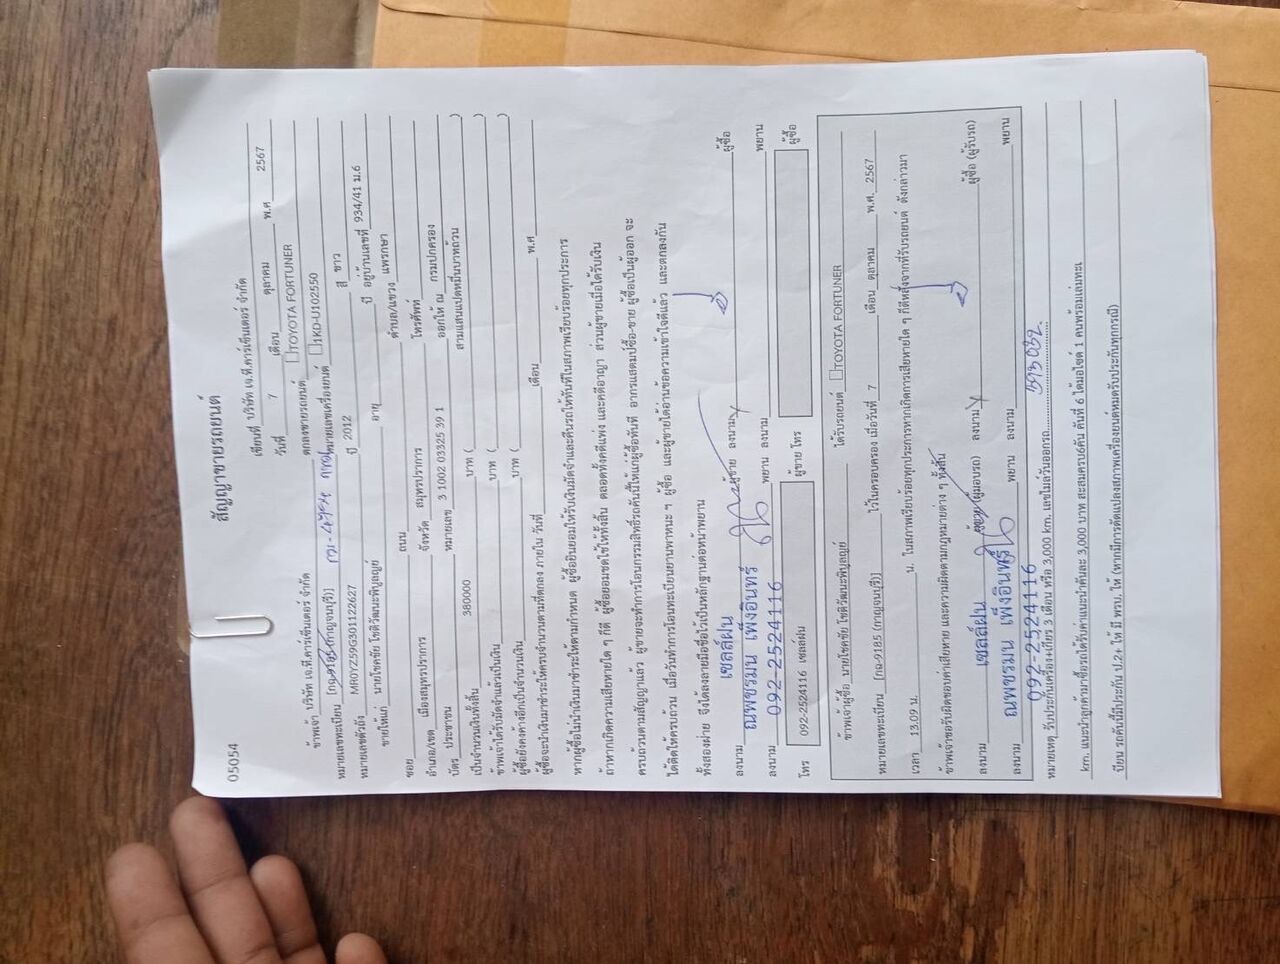 05054
สัญญาขายรถยนต์
เขียนที่ บริษัท เจ.ที.คาร์เซ็นเตอร์ จำกัด
วันที่ 7 เดือน ตุลาคม พ.ศ 2567
ข้าพเจ้า บริษัท เจ.ที.คาร์เซ็นเตอร์ จำกัด ตกลงขายรถยนต์ TOYOTA FORTUNER
หมายเลขทะเบียน [กฉ-9185 (กาญจนบุรี)] หมายเลขเครื่องยนต์ 1KD-U102550
หมายเลขตัวถัง MR0YZ59G301122627 ปี 2012 สี ขาว
ขายให้แก่ นายโชคชัย โชติวัฒนะพิบูลญย์ อายุ ปี อยู่บ้านเลขที่ 934/41 ม.6
ซอย ถนน ตำบล/แขวง แพรกษา
อำเภอ/เขต เมืองสมุทรปราการ จังหวัด สมุทรปราการ โทรศัพท์
บัตร ประชาชน หมายเลข 3 1002 03325 39 1 ออกให้ ณ กรมปกครอง
เป็นจำนวนเงินทั้งสิ้น 380000 บาท ( สามแสนแปดหมื่นบาทถ้วน )
ข้าพเจ้าได้รับมัดจำแล้วเป็นเงิน บาท ( )
ผู้ซื้อยังคงค้างอีกเป็นจำนวนเงิน บาท ( )
ผู้ซื้อจะนำเงินมาชำระให้ครบจำนวนตามที่ตกลง ภายใน วันที่ เดือน พ.ศ
หากผู้ซื้อไม่นำเงินมาชำระให้ตามกำหนด ผู้ซื้อยินยอมให้ริบเงินมัดจำและคืนรถให้ทันทีในสภาพเรียบร้อยทุกประการ
ถ้าหากเกิดความเสียหายใด ๆ ก็ดี ผู้ซื้อยอมชดใช้ให้ทั้งสิ้น ตลอดทั้งคดีแพ่ง และคดีอาญา ส่วนผู้ขายเมื่อได้รับเงิน
ครบถ้วนตามสัญญาแล้ว ผู้ขายจะทำการโอนกรรมสิทธิ์รถคันนี้ให้แก่ผู้ซื้อทันที อากรแสตมป์ซื้อ-ขาย ผู้ซื้อเป็นผู้ออก จะ
ได้ติดให้ครบถ้วน เมื่อวันทำการโอนทะเบียนยานพาหนะ ๆ ผู้ซื้อ และผู้ขายได้อ่านข้อความเข้าใจดีแล้ว และตกลงกัน
ทั้งสองฝ่าย จึงได้ลงลายมือชื่อไว้เป็นหลักฐานต่อหน้าพยาน
เซลล์ฝน
ลงนาม ณพชรมน เพ็งอินทร์ ผู้ขาย ลงนาม ผู้ซื้อ
ลงนาม 092-2524116 พยาน ลงนาม พยาน
โทร 092-2524116 เซลล์ฝน ผู้ขาย โทร ผู้ซื้อ
ข้าพเจ้าผู้ซื้อ นายโชคชัย โชติวัฒนะพิบูลญย์ ได้รับรถยนต์ TOYOTA FORTUNER
หมายเลขทะเบียน [กฉ-9185 (กาญจนบุรี)] ไว้ในครอบครอง เมื่อวันที่ 7 เดือน ตุลาคม พ.ศ. 2567
เวลา 13.09 น. น. ในสภาพเรียบร้อยทุกประการหากเกิดการเสียหายใด ๆ ก็ดีหลังจากที่รับรถยนต์ ดังกล่าวมา
ข้าพเจ้าขอรับผิดชอบค่าเสียหาย และความผิดตามกฎหมายต่าง ๆ ทั้งสิ้น
เซลล์ฝน
ลงนาม ณพชรมน เพ็งอินทร์ ผู้ขาย (ผู้มอบรถ) ลงนาม ผู้ซื้อ (ผู้รับรถ)
ลงนาม 092-2524116 พยาน ลงนาม พยาน
หมายเหตุ รับประกันเครื่อง+เกียร์ 3 เดือน หรือ 3,000 km. เลขไมล์วันออกรถ 593032.
km. แนะนำลูกค้ามาซื้อรถได้รับค่าแนะนำคันละ 3,000 บาท สะสมครบ6คัน คันที่ 6 ได้มอไซค์ 1 คนพร้อมเล่มทะเ
บียน รถคันนี้มีประกัน ป.2+ ให้ มี พรบ. ให้ (หากมีการดัดแปลงสภาพเครื่องยนต์หมดรับประกันทุกกรณี)